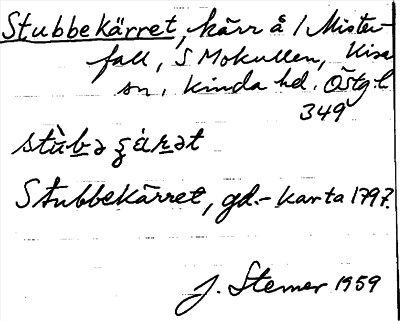 Stubbekärret, kärr å 1 Mister-
fall, S Mokullen, Kisa
sn, Kinda hd. Östg. l
349
stùbə ʂárət
Stubbekärret, gd.-karta 1797.
J. Sterner 1959